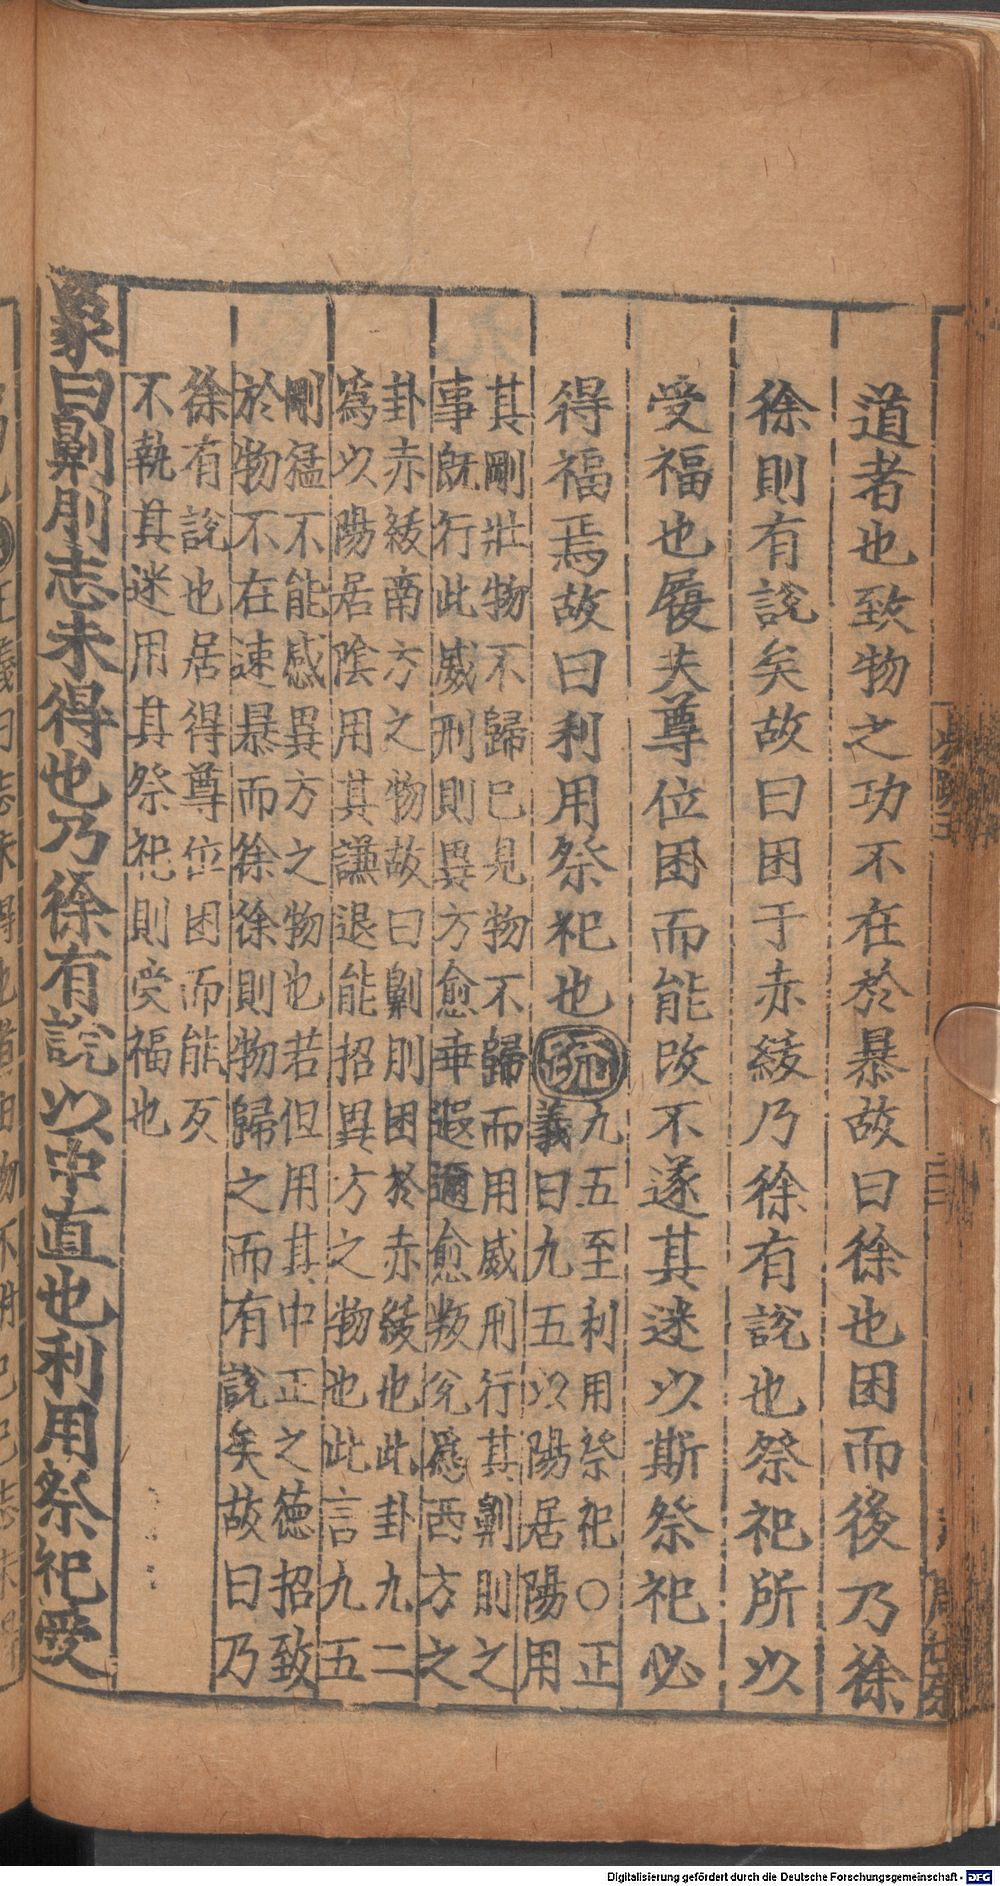 道者也致物之功不在於暴故曰徐也困而後乃徐
徐則有説矣故曰困于赤紱乃徐有説也祭祀所以
受福也履夫尊位困而能改不遂其迷以斯祭祀必
得福焉故曰利用祭祀也疏
九五至利用祭祀○正
義曰九五以陽居陽用
其剛壯物不歸巳見物不歸而用威刑行其劓刖之
事旣行此威刑則異方愈乖遐邇愈叛兊爲西方之
卦赤紱南方之物故曰劓刖困於赤紱也此卦九二
爲以陽居陰用其謙退能招異方之物也此言九五
剛猛不能感異方之物也若但用其中正之德招致
於物不在速暴而徐徐則物歸之而有説矣故曰乃
徐有説也居得尊位困而能攺
不執其迷用其祭祀則受福也
象曰劓刖志未得也乃徐有説以中直也利用祭祀受
Digitalisierung gefördert durch die Deutsche Forschungsgemeinschaft - DFG